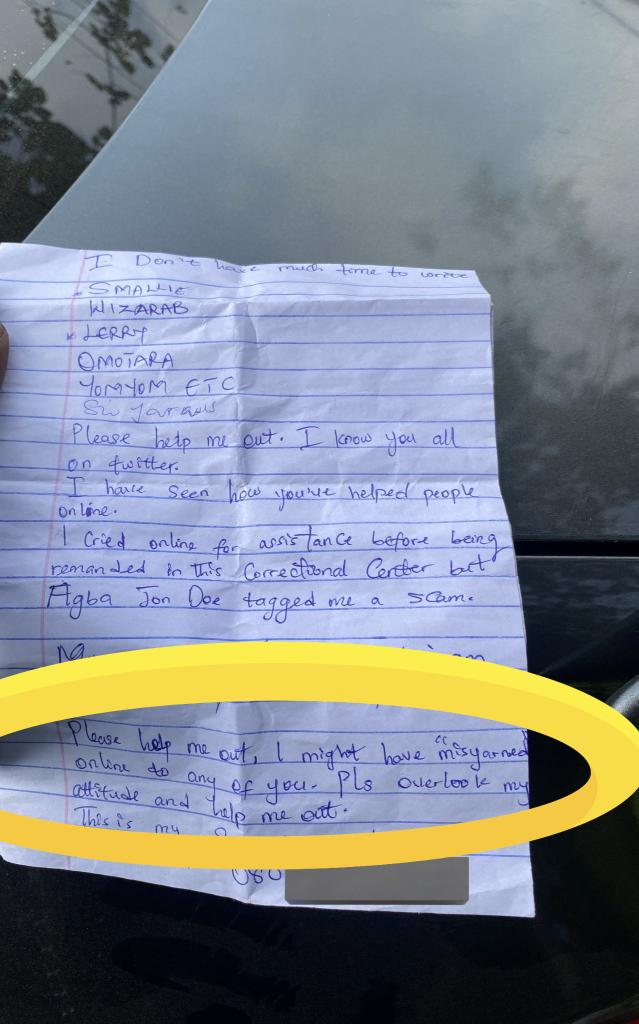 I Don't have much time to write
SMALLIE
WIZARAB
LERRY
OMOTARA
YOMYOM ETC
Please help me out. I know you all
on twitter.
I have seen how you've helped people
online.
I Cried online for assistance before being
remanded in this Correctional Center but
Agba Jon Doe tagged me a scam.
Please help me out, I might have "misyarned
online to any of you. Pls overlook my
attitude and help me out.
This is my
080